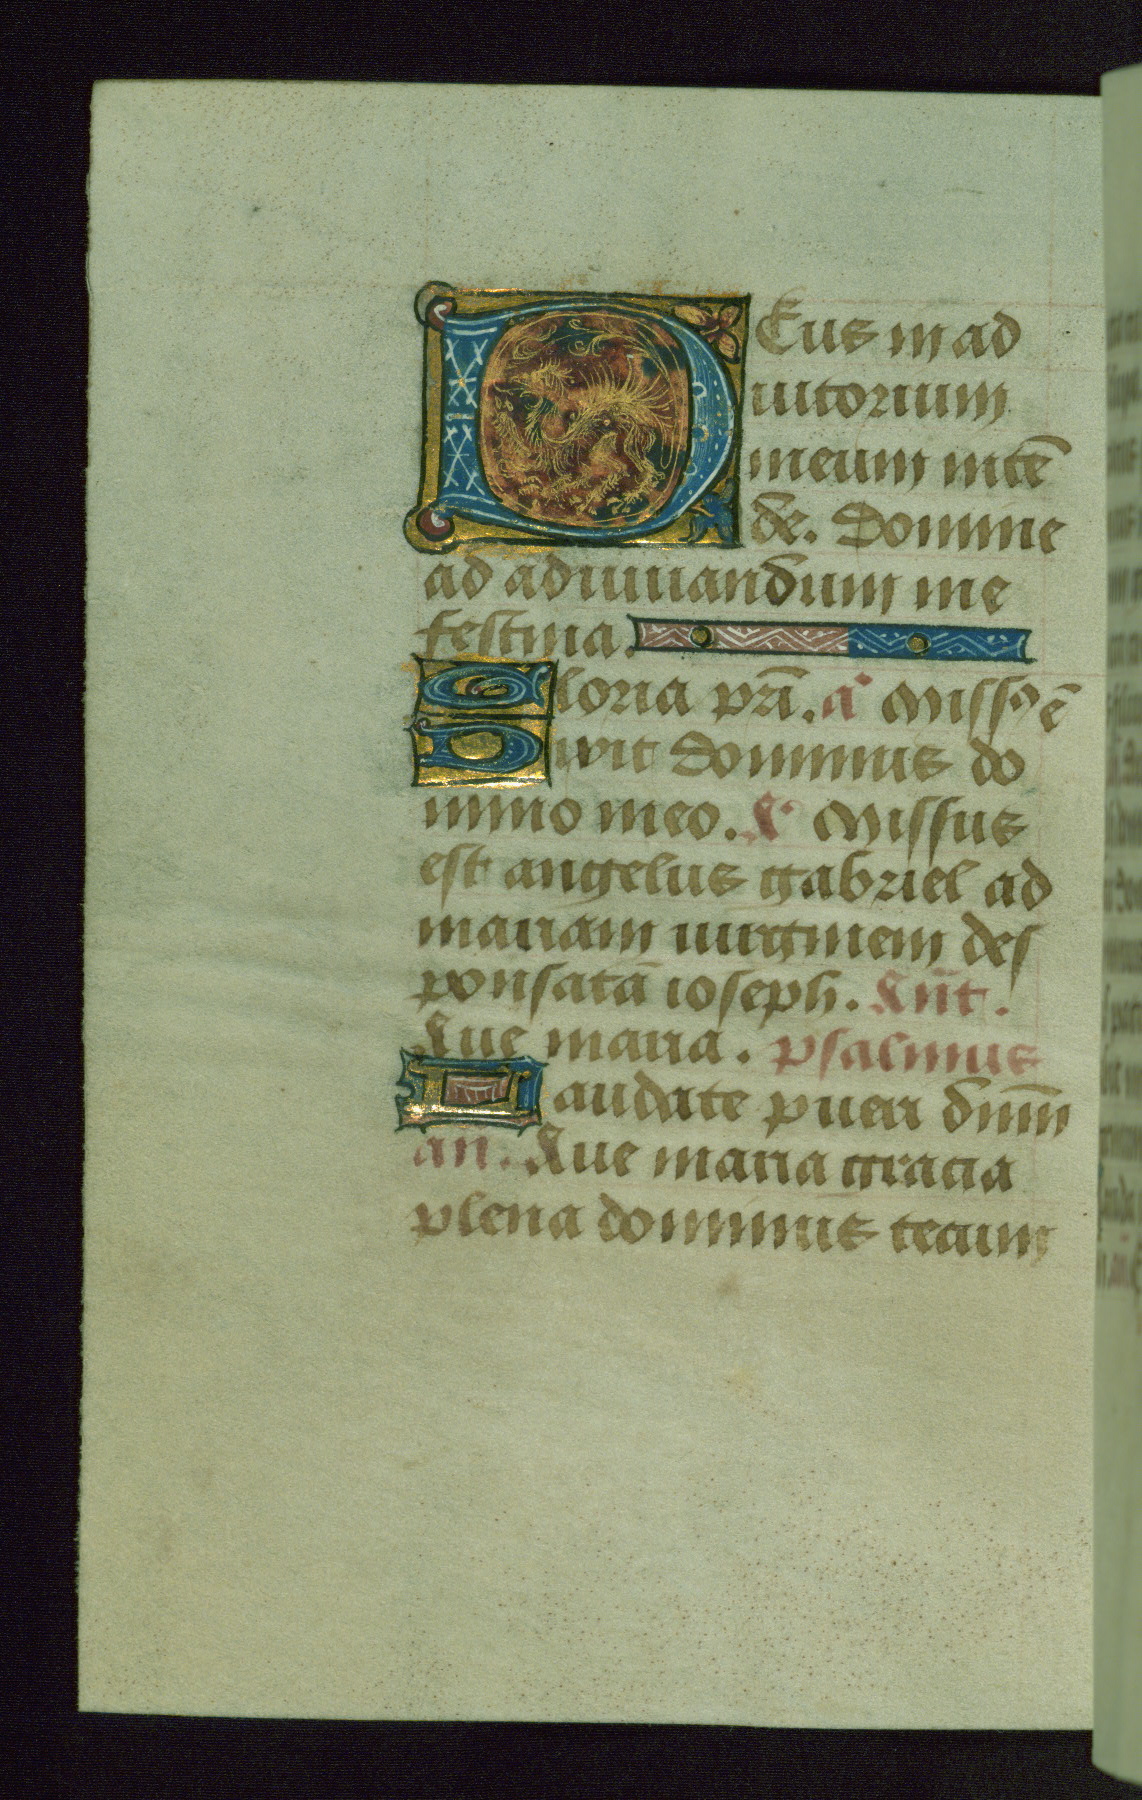 DEus in ad
iutorium
meum intē
de. Domine
ad adiuuandum me
festina.
Gloria prī. aͣ Missꝰ ē
Dixit Dominus do
mino meo. A Missus
est angelus gabriel ad
mariam uirginem des
ponsatā ioseph. Ant̄.
Aue maria. psalmus
Laudate pueri dn̄m
an. Aue maria gracia
plena dominus tecum